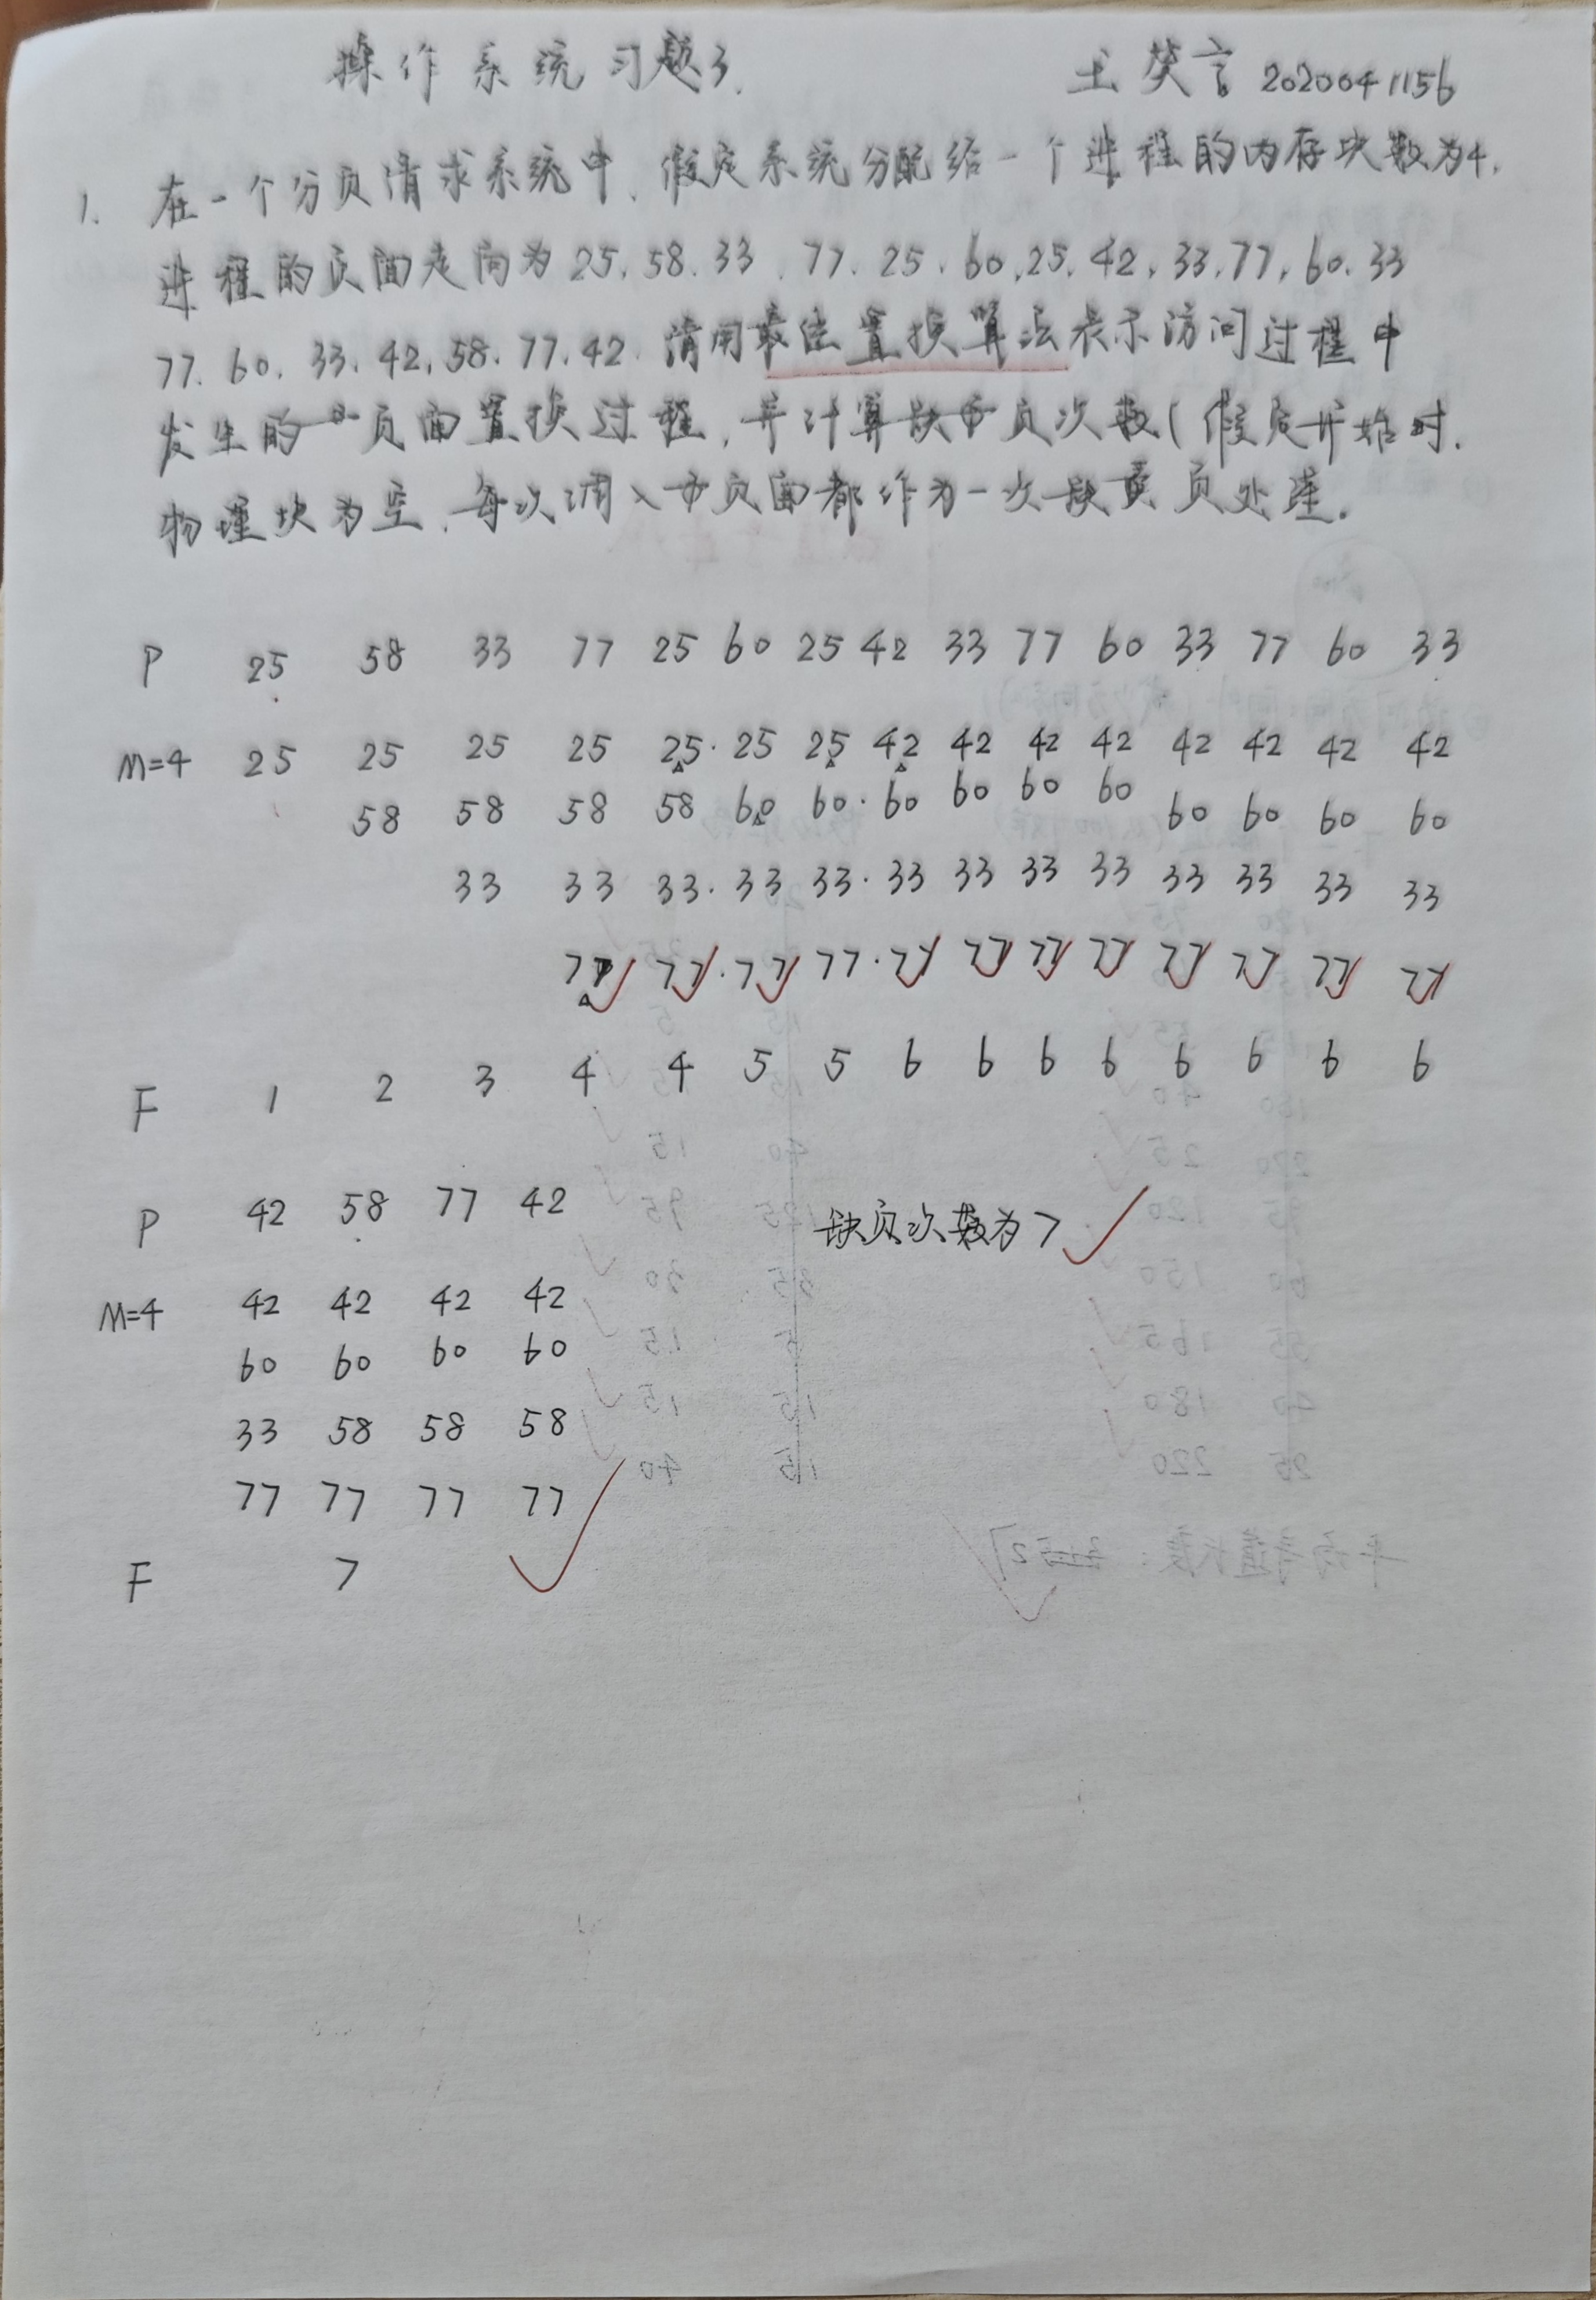 操作系统习题3. 王英言 2020041156
1. 在一个分页请求系统中、假定系统分配给一个进程的内存块数为4.
进程的页面走向为25. 58. 33. 77. 25. 60. 25. 42. 33. 77. 60. 33
77. 60. 33. 42. 58. 77. 42. 请用最佳置换算法表示访问过程中
发生的页面置换过程,并计算缺页次数(假定开始时.
物理块为空.每次调入页面都作为一次缺页处理.
P 25 58 33 77 25 60 25 42 33 77 60 33 77 60 33
M=4 25 25 25 25 25 25 25 42 42 42 42 42 42 42 42
58 58 58 58 60 60 60 60 60 60 60 60 60 60
33 33 33 33 33 33 33 33 33 33 33 33 33
77 77 77 77 77 77 77 77 77 77 77 77
F 1 2 3 4 4 5 5 6 6 6 6 6 6 6 6
P 42 58 77 42 缺页次数为7
M=4 42 42 42 42
60 60 60 60
33 58 58 58
77 77 77 77
F 7